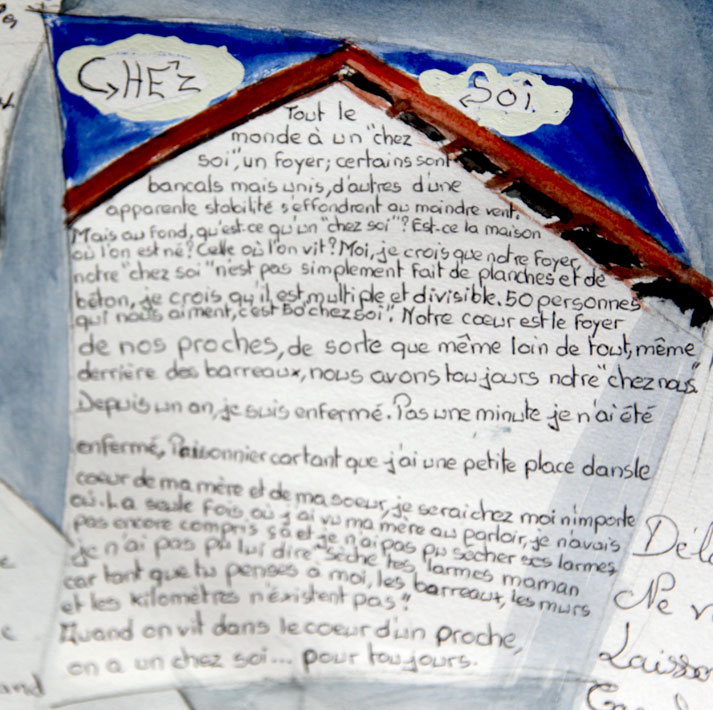 CHEZ
SOÎ
Tout le
monde à un "chez
soi", un foyer; certains sont
bancals mais unis, d'autres d'une
apparente stabilité s'effondrent au moindre vent.
Mais au fond, qu'est-ce qu'un "chez soi"? Est-ce la maison
où l'on est né? Celle où l'on vit? Moi, je crois que notre foyer,
notre "chez soi" n'est pas simplement fait de planches et de
béton, je crois qu'il est multiple et divisible. 50 personnes
qui nous aiment, c'est 50 "chez soi". Notre cœur est le foyer
de nos proches, de sorte que même loin de tout, même
derrière des barreaux, nous avons toujours notre "chez nous".
Depuis un an, je suis enfermé. Pas une minute je n'ai été
enfermé, Prisonnier car tant que j'ai une petite place dans le
cœur de ma mère et de ma soeur, je serai chez moi n'importe
où. La seule fois où j'ai vu ma mère au parloir, je n'avais
pas encore compris çà et je n'ai pas pu sécher ses larmes,
je n'ai pas pû lui dire "sèche tes larmes maman
car tant que tu penses à moi, les barreaux, les murs
et les kilomètres n'existent pas".
Quand on vit dans le coeur d'un proche,
on a un chez soi... pour toujours.
Ne